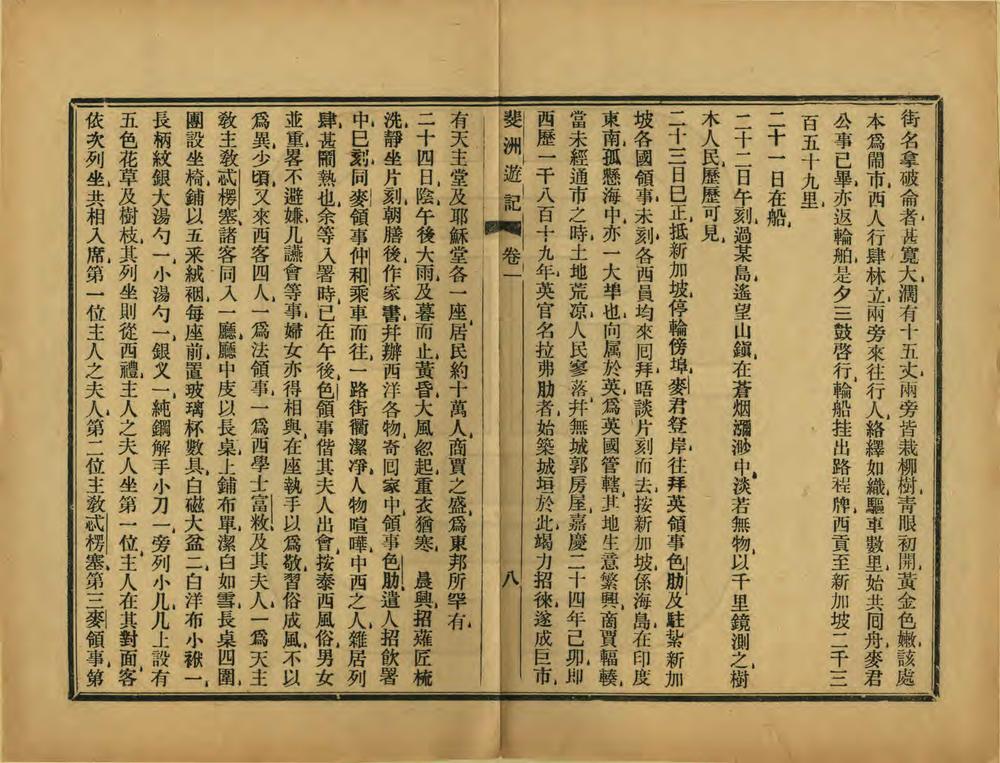 街名拿破侖者甚寬大濶有十五丈兩旁皆栽柳樹靑眼初開黃金色嫩該處
本爲鬧市西人行肆林立兩旁來往行人絡繹如織驅車數里始共囘舟麥君
公事已畢亦返輪舶是夕三鼓啓行輪船挂出路程牌西貢至新加坡二千三
百五十九里
二十一日在船
二十二日午刻過某島遙望山鎭在蒼烟瀰渺中淡若無物以千里鏡測之樹
木人民歷歷可見
二十三日巳正抵新加坡停輪傍埠麥君登岸往拜英領事色肋及駐紮新加
坡各國領事未刻各西員均來囘拜晤談片刻而去按新加坡係海島在印度
東南孤懸海中亦一大埠也向属於英爲英國管轄其地生意繁興商賈輻輳
當未經通市之時土地荒凉人民寥落幷無城郭房屋嘉慶二十四年己卯即
西歷一千八百十九年英官名拉弗肋者始築城垣於此竭力招徠遂成巨市
斐洲遊記 卷一 八
有天主堂及耶穌堂各一座居民約十萬人商賈之盛爲東邦所罕有
二十四日陰午後大雨及暮而止黃昏大風忽起重衣猶寒 晨興招薙匠梳
洗靜坐片刻朝膳後作家書幷辦西洋各物寄囘家中領事色肋遣人招飮署
中巳刻同麥領事仲和乘車而往一路街衢潔凈人物喧嘩中西之人雜居列
肆甚鬧熱也余等入署時已在午後色領事偕其夫人出會按泰西風俗男女
並重畧不避嫌凡讌會等事婦女亦得相與在座執手以爲敬習俗成風不以
爲異少頃又來西客四人一爲法領事一爲西學士富敉及其夫人一爲天主
敎主敎忒楞塞諸客同入一廳廳中庋以長桌上鋪布單潔白如雪長桌四圍
團設坐椅鋪以五采絨裀每座前置玻璃杯數具白磁大盆二白洋布小袱一
長柄紋銀大湯勺一小湯勺一銀叉一純鋼解手小刀一旁列小几几上設有
五色花草及樹枝其列坐則從西禮主人之夫人坐第一位主人在其對面客
依次列坐共相入席第一位主人之夫人第二位主敎忒楞塞第三麥領事第